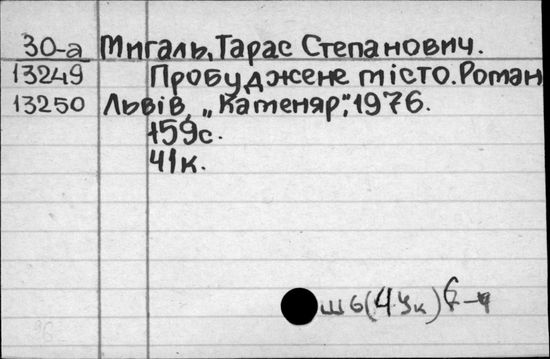 30-а Мигаль, Тарас Степанович.
13249 Пробуджене місто. Роман
13250 Львів, „Каменяр", 1976.
159с.
41к.
ш6(4Ук)